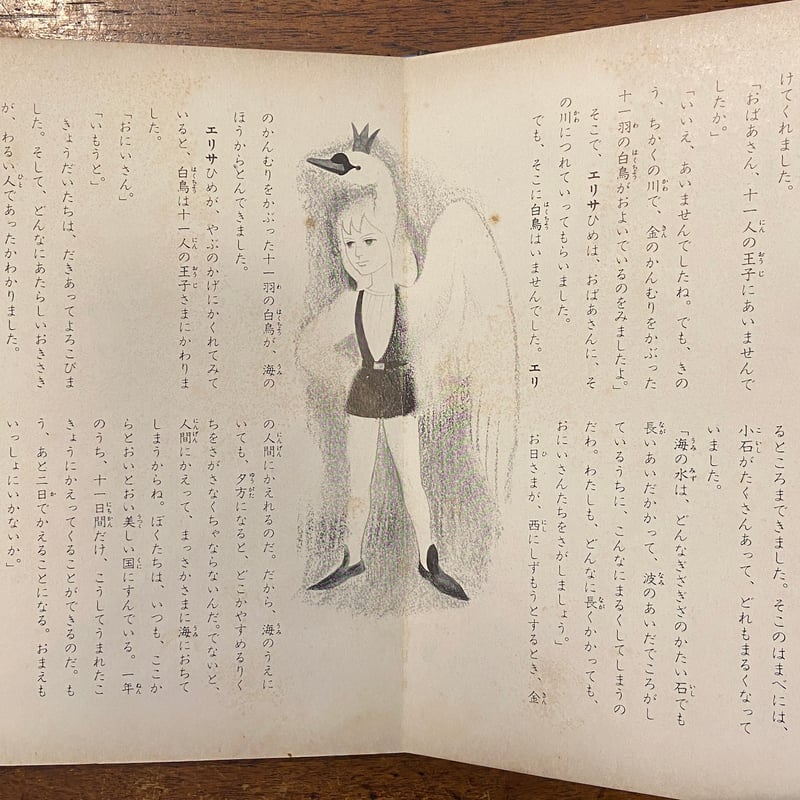 けてくれました。
「おばあさん、十一人の王子にあいませんで
したか。」
「いいえ、あいませんでしたね。でも、きの
う、ちかくの川で、金のかんむりをかぶった
十一羽の白鳥がおよいでいるのをみましたよ。」
そこで、エリサひめは、おばあさんに、そ
の川につれていってもらいました。
でも、そこに白鳥はいませんでした。エリ
るところまできました。そこのはまべには、
小石がたくさんあって、どれもまるくなって
いました。
「海の水は、どんなぎざぎざのかたい石でも
長いあいだかかって、波のあいだでころがし
ているうちに、こんなにまるくしてしまうの
だわ。わたしも、どんなに長くかかっても、
おにいさんたちをさがしましょう。」
お日さまが、西にしずもうとするとき、金
のかんむりをかぶった十一羽の白鳥が、海の
ほうからとんできました。
エリサひめが、やぶのかげにかくれてみて
いると、白鳥は十一人の王子さまにかわりま
した。
「おにいさん。」
「いもうと。」
きょうだいたちは、だきあってよろこびま
した。そして、どんなにあたらしいおきさき
が、わるい人であったかわかりました。
の人間にかえれるのだ。だから、海のうえに
いても、夕方になると、どこかやすめるりく
ちをさがさなくちゃならないんだ。でないと、
人間にかえって、まっさかさまに海におちて
しまうからね。ぼくたちは、いつも、ここか
らとおいとおい美しい国にすんでいる。一年
のうち、十一日間だけ、こうしてうまれたこ
きょうにかえってくることができるのだ。も
う、あと二日でかえることになる。おまえも
いっしょにいかないか。」